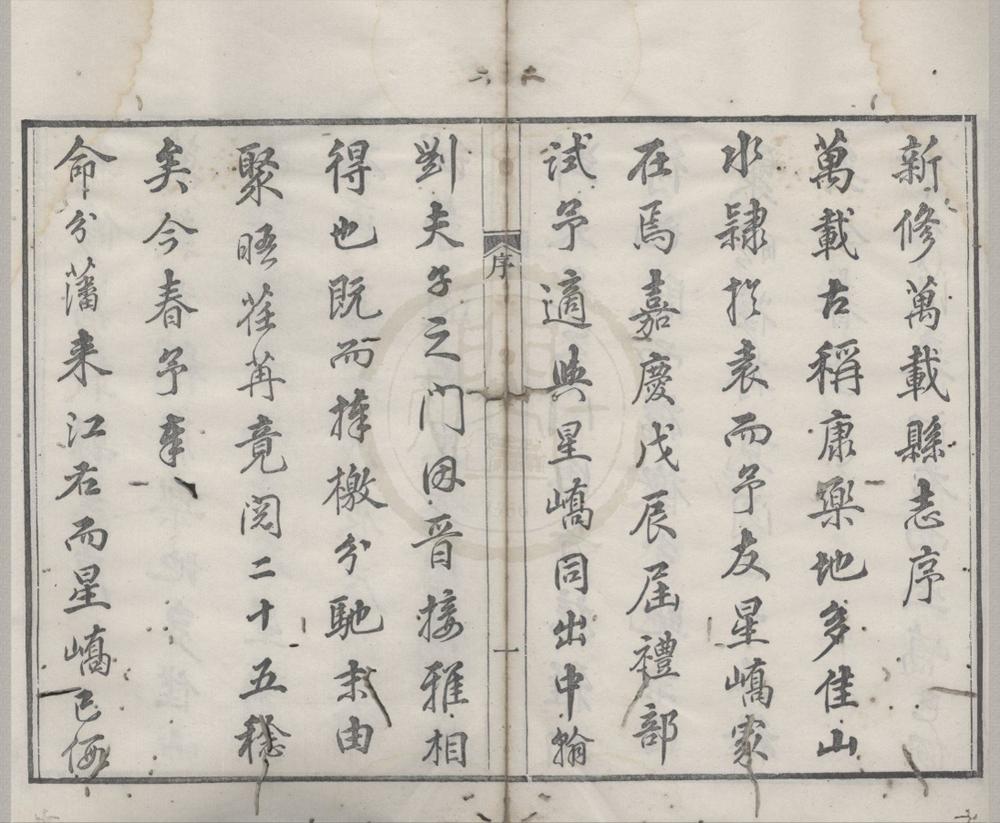 新修萬載縣志序
萬載古稱康樂地多佳山
水隸於袁而予友星嶠家
在焉嘉慶戊辰屆禮部
試予適與星嶠同出中翰
序
一
劉夫子之門因晋接雅相
得也既而捧檄分馳末由
聚晤荏苒竟閱二十五稔
矣今春予奉
命分藩来江右而星嶠已